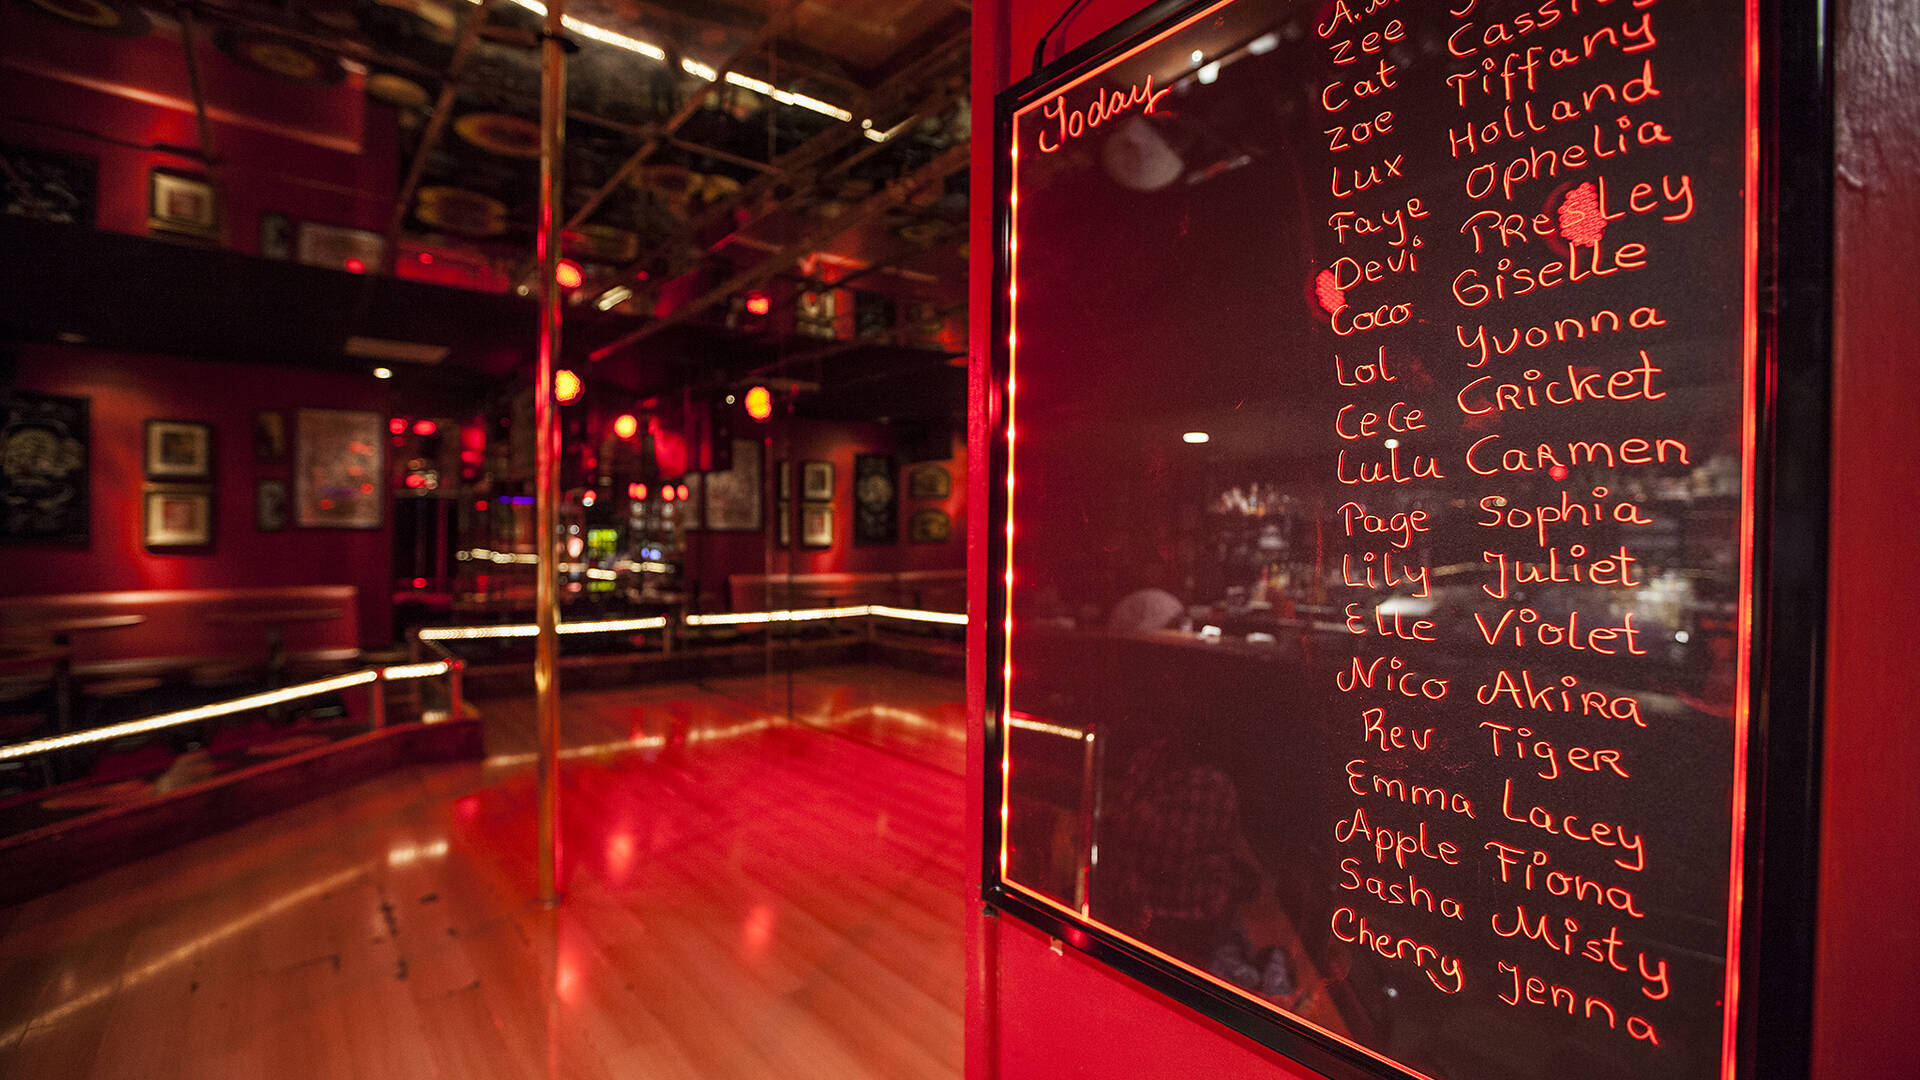 Today
Zee Cassidy
Cat Tiffany
Zoe Holland
Lux Ophelia
Faye PResLey
Devi Giselle
Coco Yvonna
Lol CRicket
CeCe CaRmen
LuLu Sophia
Page Juliet
Lily Violet
Elle AkiRa
Nico TigeR
Rev Lacey
Emma Fiona
Apple Misty
Sasha Jenna
Cherry